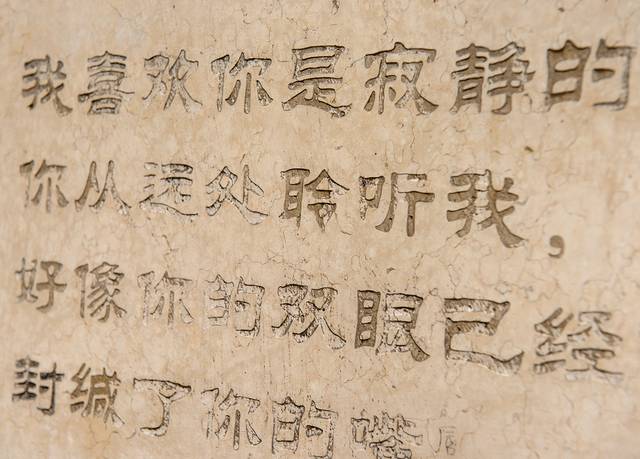 我喜欢你是寂静的
你从远处聆听我，
好像你的双眼已经
封缄了你的嘴